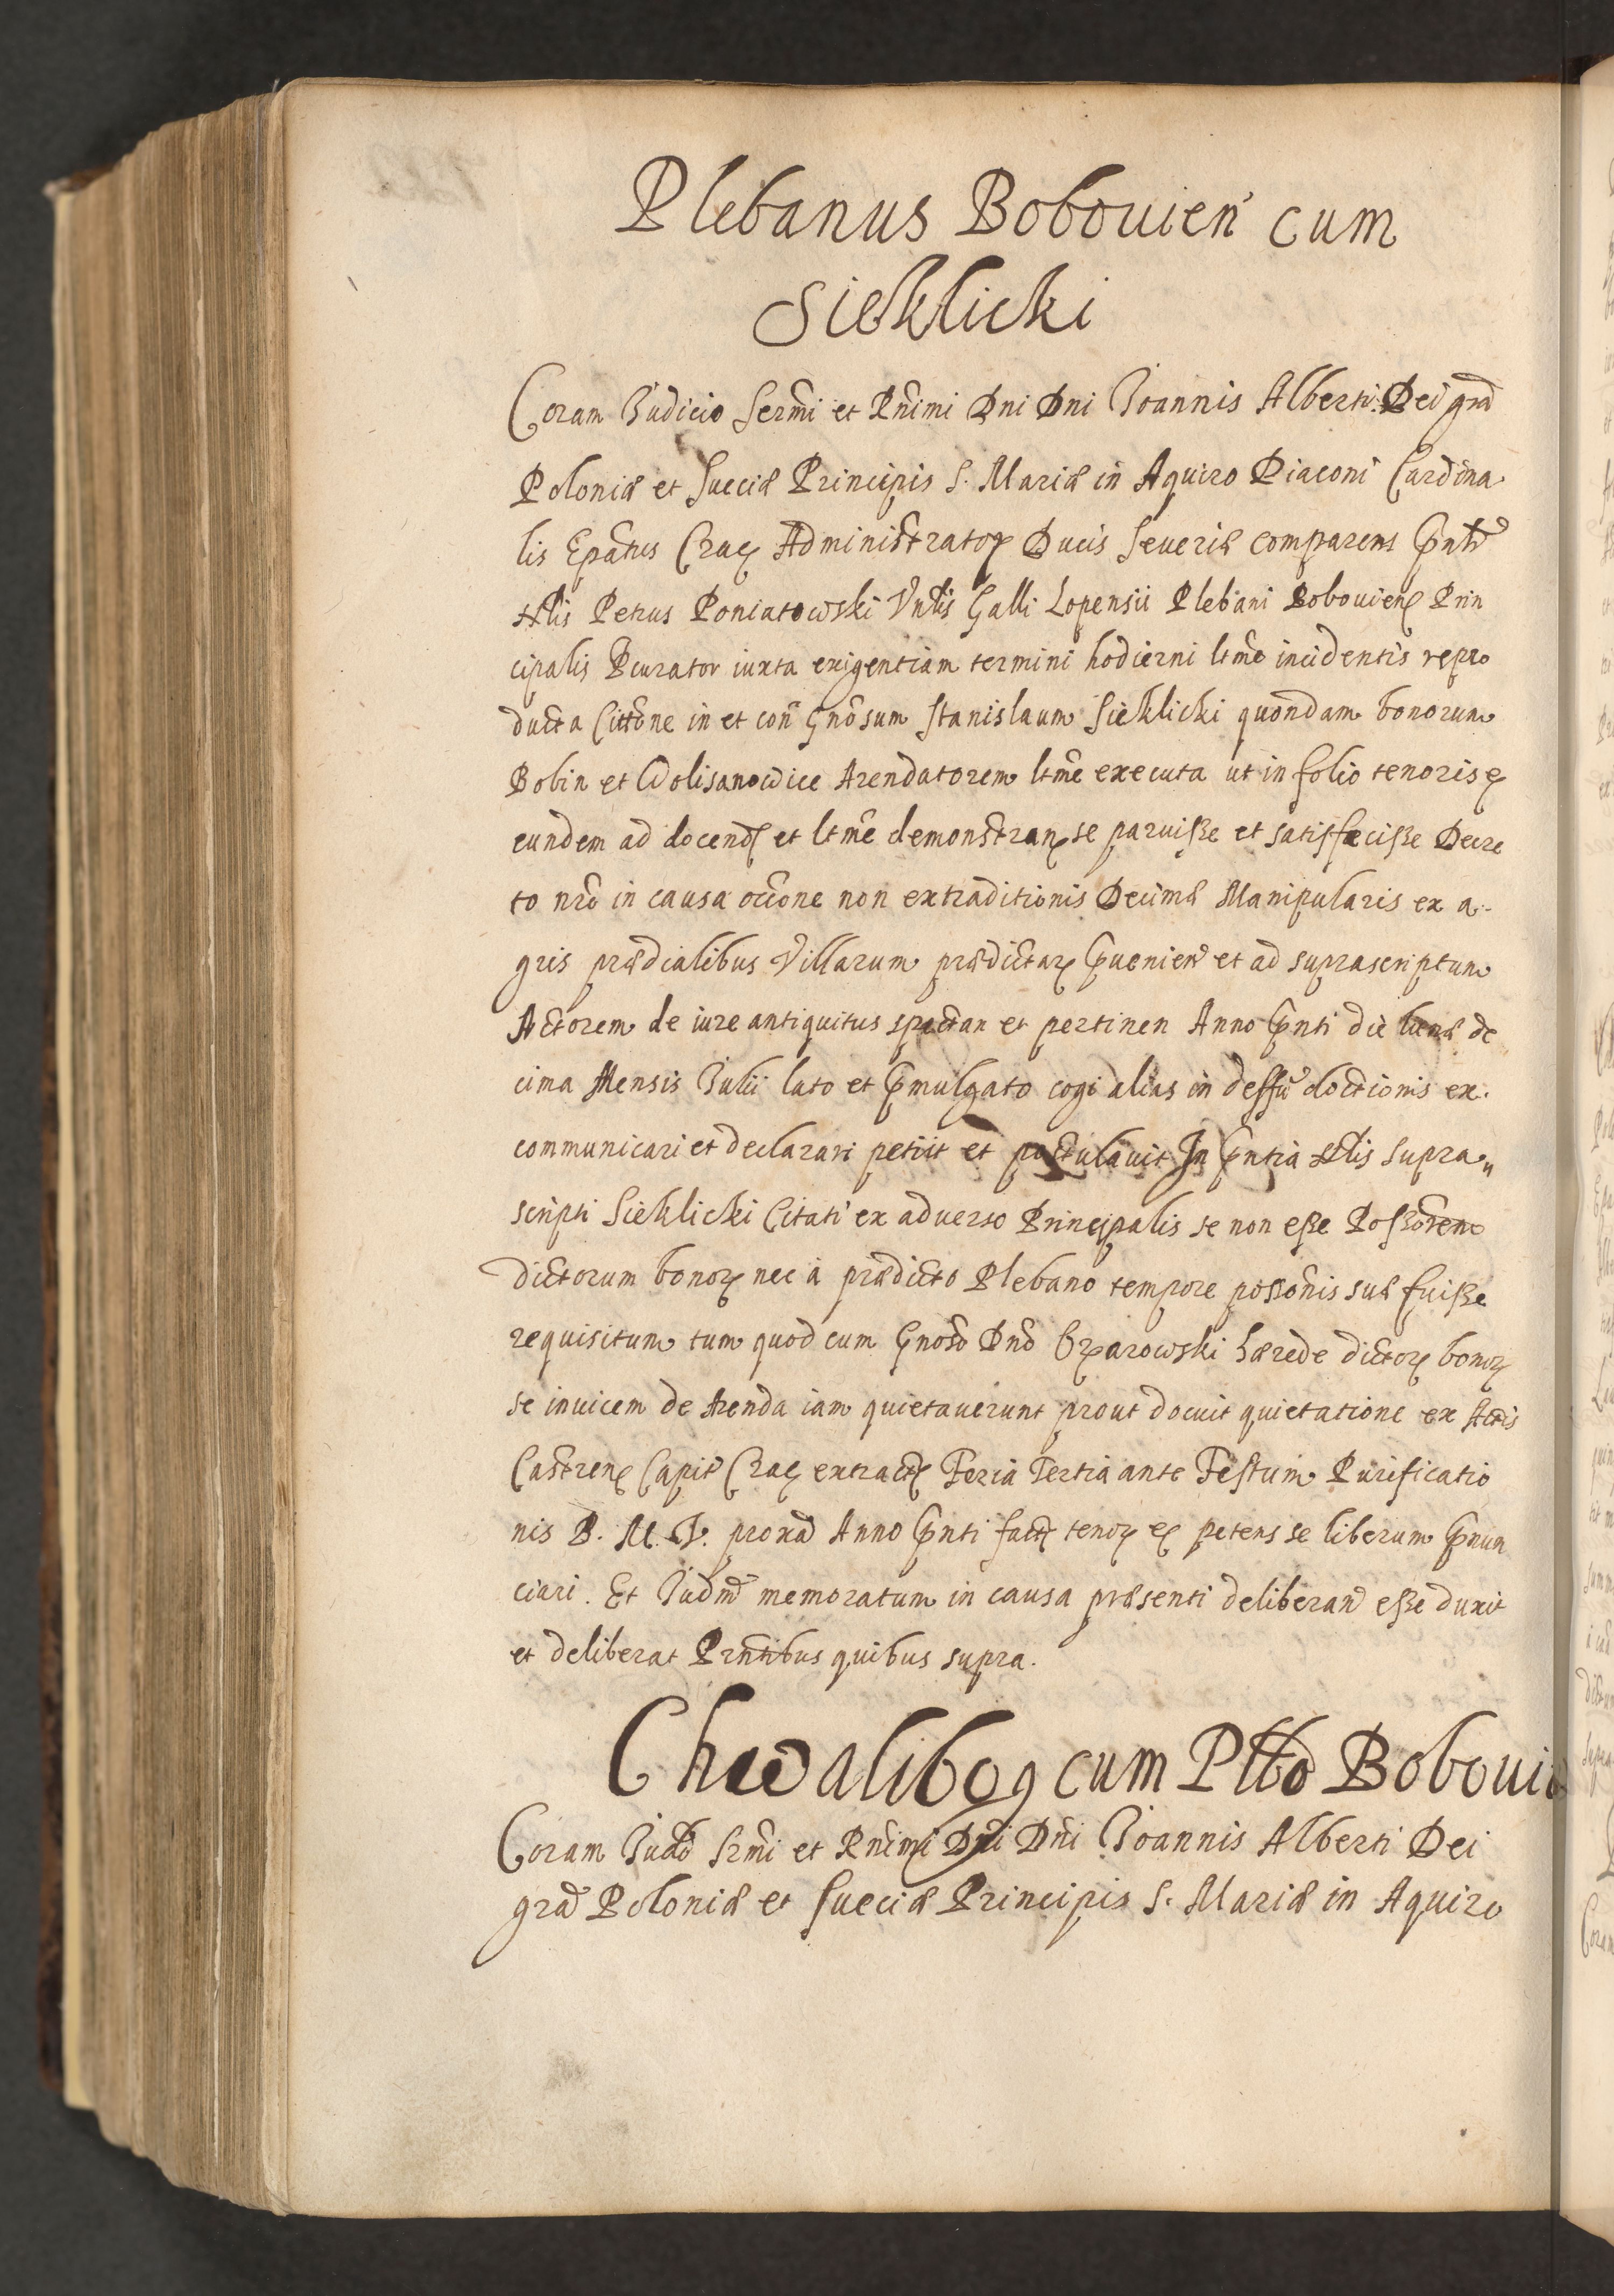 Plebanus Bobouien cum
Sieklicki
Coram Iudicio Sermi et Rnimi Dni Dni Ioannis Alberti Dei gra
Poloniæ et Sueciæ Principis S. Mariæ in Aquiro Diaconi Cardina
lis Epatus Crac Administrator Ducis Seueriæ comparens
Petrus Poniatowski Vnlis Galli Lopensii Plebani Bobouien Prin
cipalis Pcurator iuxta exigentiam termini hodierni ltme incidentis repro
ducta Cittone in et con Gnosum Stanislaum Sieklicki quondam bonorum
Bobin et Wolisanowice Arendatorem ltme executa ut in folio tenoris
eundem ad docend et ltme demonstran se paruisse et satisfecisse Decre
to nro in causa occone non extraditionis Decimæ Manipularis ex a-
gris prædialibus Villarum prædictar puenien et ad suprascriptum
Actorem de iure antiquitus spectan et pertinen Anno pnti die de
cima Mensis Iulii lato et pmulgato cogi alias in deffu doctionis ex.
communicari et declarari petiit et postulauit In pntia supra„
scripti Sieklicki Citati ex aduerso Principalis se non esse Possorem
dictorum bonor nec à prædicto Plebano tempore possonis suæ fuisse
requisitum tum quod cum Gnoso Dno Ozarowski hærede dictor bonor
se inuicem de Arenda iam quietauerunt prout docuit quietatione ex Actis
Castren Capit Crac extract Feria Tertia ante Festum Purificatio
nis B. M. V. prox Anno pnti fact tenor petens se liberum pnun
ciari. Et Iudm memoratum in causa præsenti deliberan esse duxit
et deliberat Prntibus quibus supra.
Chwalibog cum Pltto Bobouie
Coram Iudo Srmi et Rnimi Dni Dni Ioannis Alberti Dei
gra Poloniæ et Sueciæ Principis S. Mariæ in Aquiro